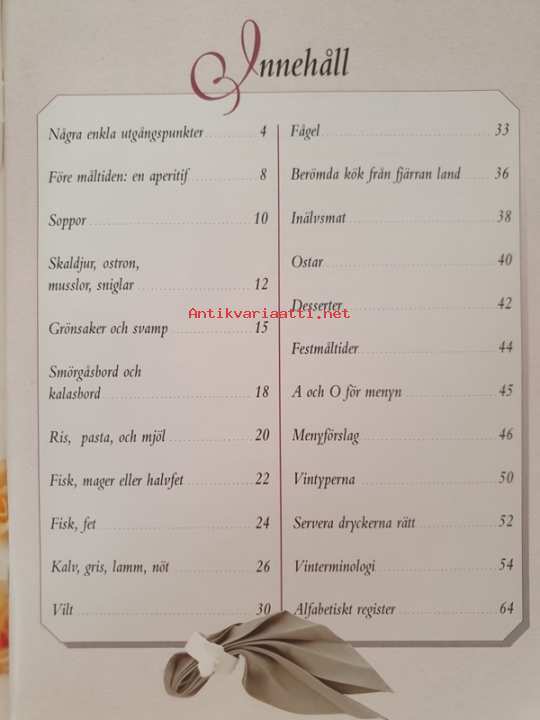 Innehåll
Några enkla utgångspunkter 4
Före måltiden: en aperitif 8
Soppor 10
Skaldjur, ostron,
musslor, sniglar 12
Grönsaker och svamp 15
Smörgåsbord och
kalasbord 18
Ris, pasta, och mjöl 20
Fisk, mager eller halvfet 22
Fisk, fet 24
Kalv, gris, lamm, nöt 26
Vilt 30
Fågel 33
Berömda kök från fjärran land 36
Inälvsmat 38
Ostar 40
Desserter 42
Festmåltider 44
A och O för menyn 45
Menyförslag 46
Vintyperna 50
Servera dryckerna rätt 52
Vinterminologi 54
Alfabetiskt register 64
Antikvariaatti.net